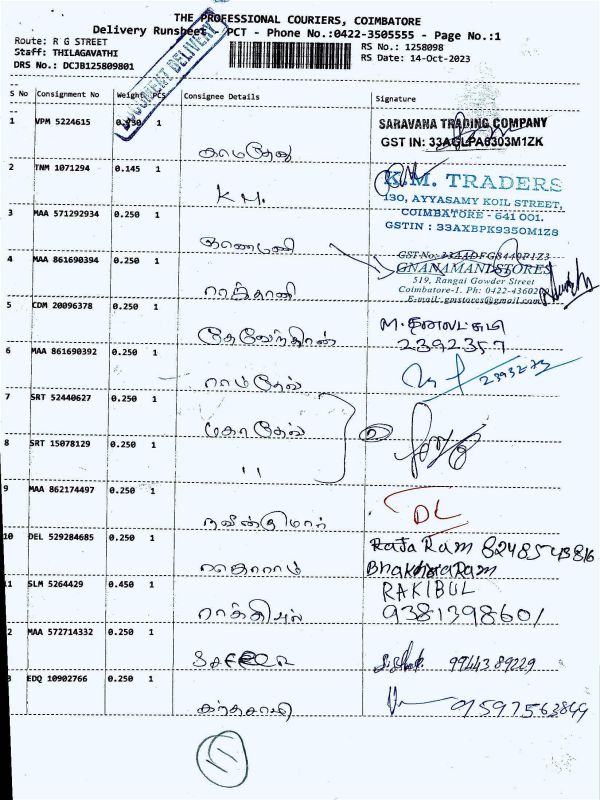 THE PROFESSIONAL COURIERS, COIMBATORE
Delivery Runsheet PCT - Phone No.:0422-3505555 - Page No.:1
Route: R G STREET
RS No.: 1258098
Staff: THILAGAVATHI
RS Date: 14-Oct-2023
DRS No.: DCJB125809801
DOCUMENT DELIVERY
S No Consignment No Weight PCS Consignee Details Signature
1 VPM 5224615 1
காமதேனு
SARAVANA TRADING COMPANY
GST IN: 33AGLPA6303M1ZK
2 TNM 1071294 0.145 1
K.M.
K.M. TRADERS
130, AYYASAMY KOIL STREET,
COIMBATORE - 641 001.
GSTIN : 33AXBPK9350M1Z8
3 MAA 571292934 0.250 1
ஞானமணி
4 MAA 861690394 0.250 1
ராஜ்தானி
GNANAMANI STORES
519, Rangai Gowder Street
Coimbatore-1. Ph: 0422-43602
E-mail: gmstores@gmail.com
5 CDM 20096378 0.250 1
தேவேந்திரன்
2392357
6 MAA 861690392 0.250 1
ராமதேவ்
2393273
7 SRT 52440627 0.250 1
மகாதேவ்
2
8 SRT 15078129 0.250 1
"
9 MAA 862174497 0.250 1
நவீன்குமார்
DL
10 DEL 529284685 0.250 1
ஜெராராம்
Raja Ram 8248543816
Bhakhara Ram
11 SLM 5264429 0.450 1
ராக்கிபுல்
RAKIBUL
9381398601
2 MAA 572714332 0.250 1
99443 89229
3 EDQ 10902766 0.250 1
கந்தசாமி
01597563849
11